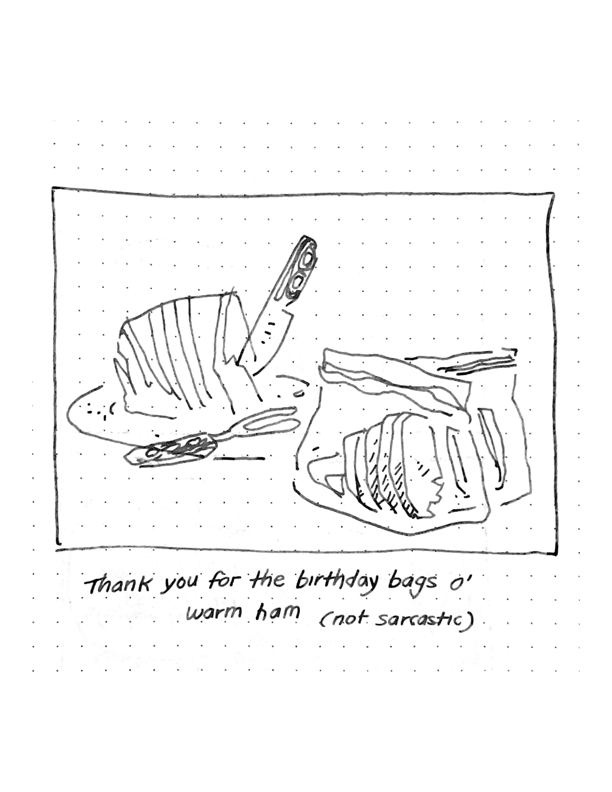 Thank you for the birthday bags o'
warm ham (not sarcastic)